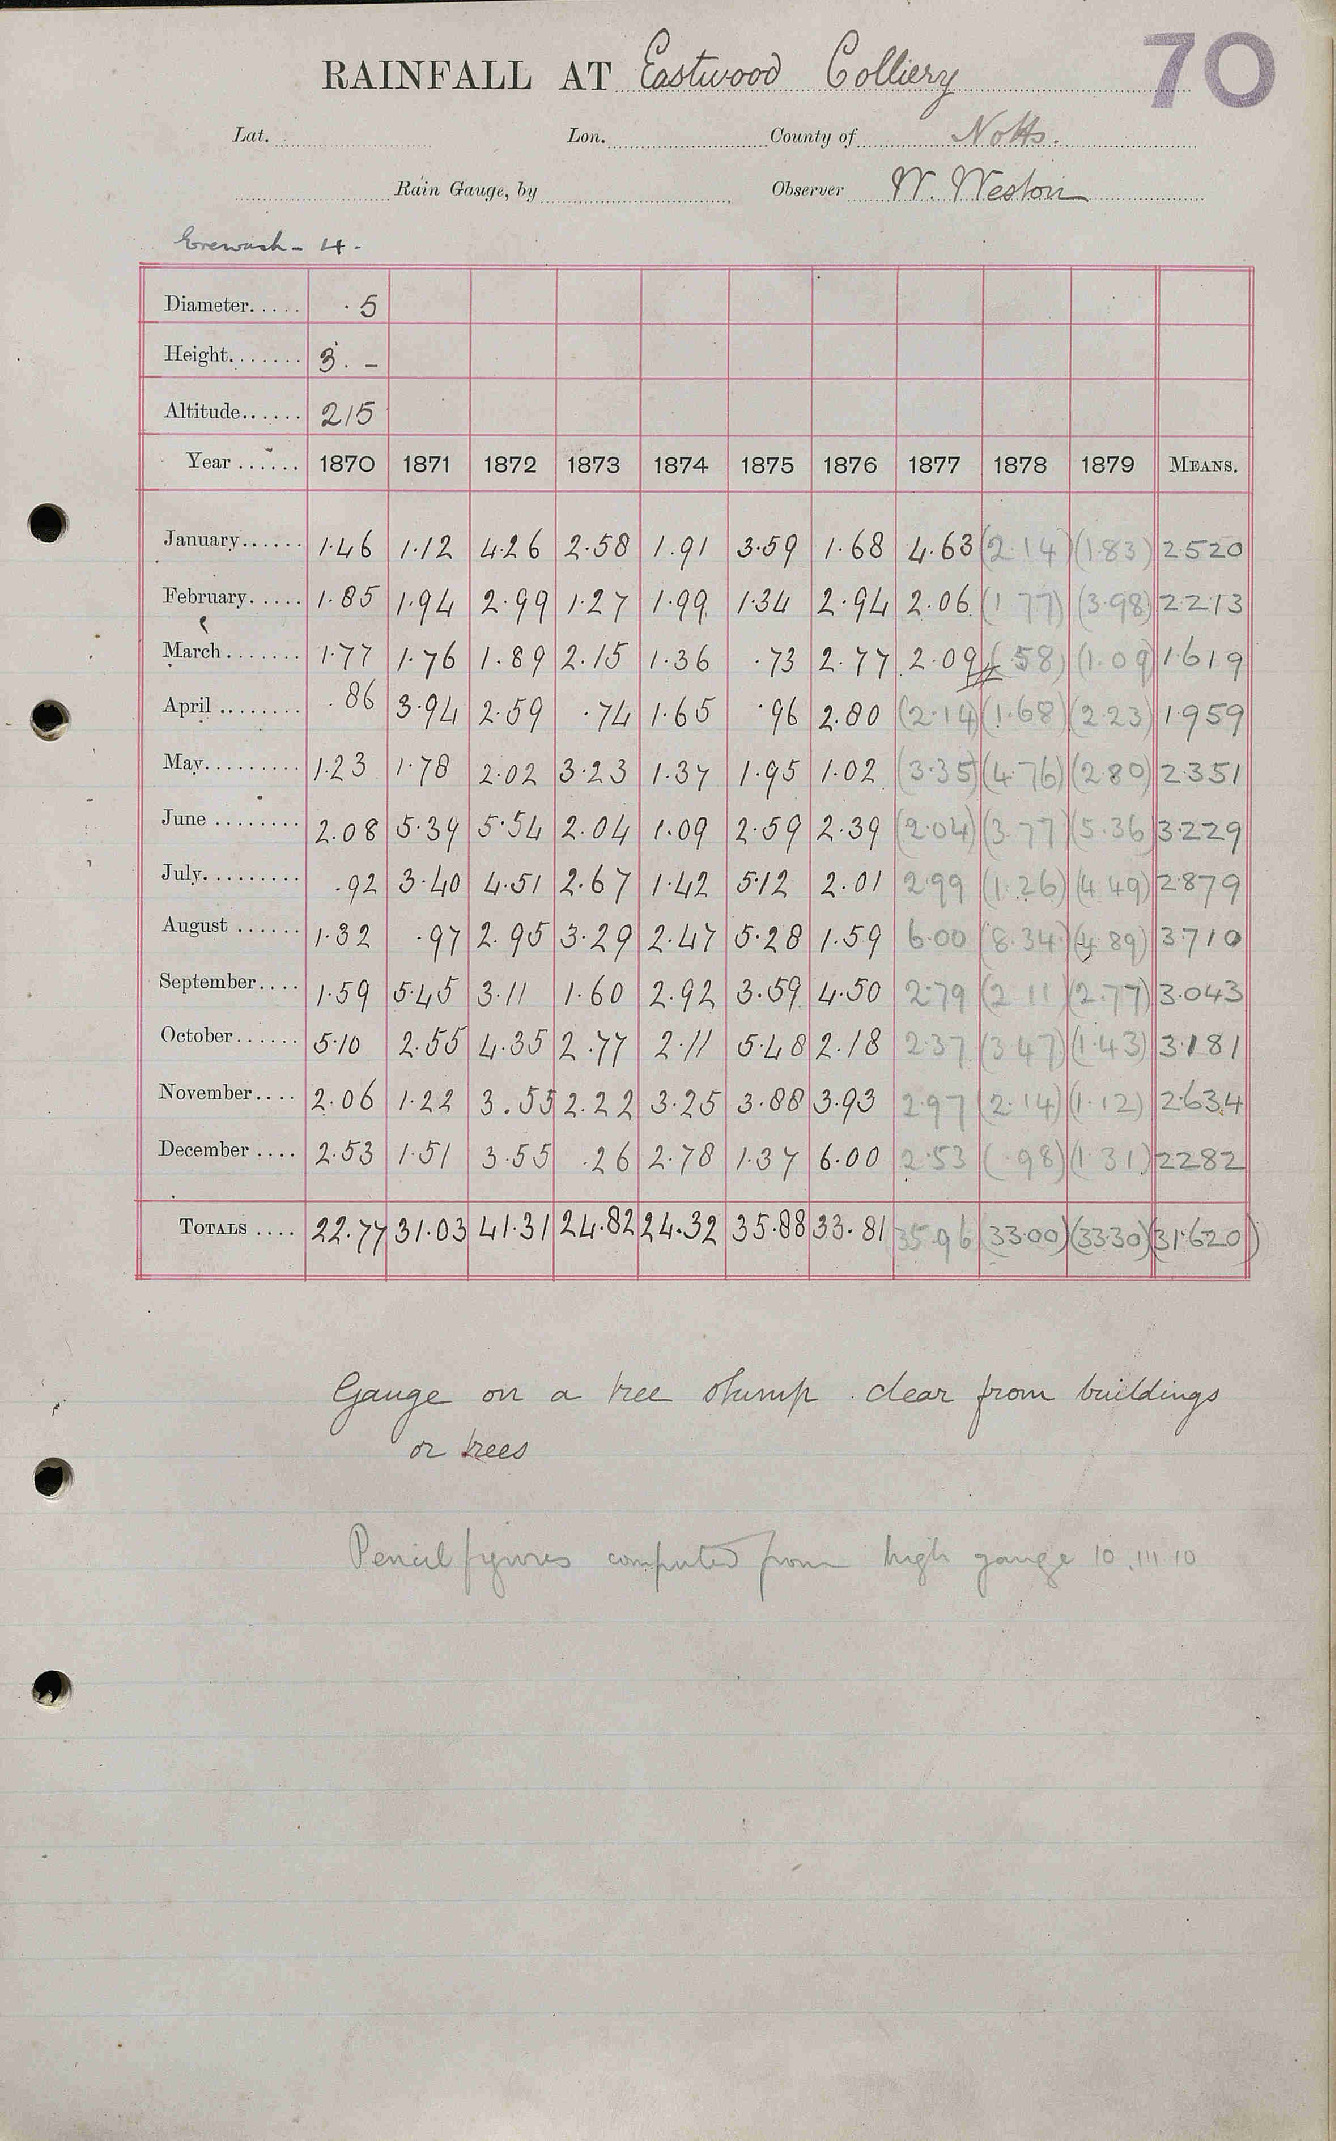 70
RAINFALL AT Eastwood Colliery
Lat. Lon. County of Notts.
Rain Gauge, by Observer W. Weston
Erewash - 4 -
Diameter..... · 5
Height....... 3 . –
Altitude...... 215
Year ...... 1870 1871 1872 1873 1874 1875 1876 1877 1878 1879 MEANS.
January...... 1·46 1·12 4·26 2·58 1·91 3·59 1·68 4·63 (2·14) (1·83) 2·520
February..... 1·85 1·94 2·99 1·27 1·99 1·34 2·94 2·06 (1 77) (3·98) 2·213
March....... 1·77 1·76 1·89 2·15 1·36 ·73 2·77 2·09 (·58) (1·09) 1·619
April ........ ·86 3·94 2·59 ·74 1·65 ·96 2·80 (2·14) (1·68) (2·23) 1·959
May......... 1·23 1·78 2·02 3·23 1·37 1·95 1·02 (3·35) (4·76) (2·80) 2·351
June ........ 2·08 5·39 5·54 2·04 1·09 2·59 2·39 (2·04) (3·77) (5·36) 3·229
July......... ·92 3·40 4·51 2·67 1·42 5·12 2·01 2·99 (1·26) (4·49) 2·879
August ...... 1·32 ·97 2·95 3·29 2·47 5·28 1·59 6·00 (8·34) (4·89) 3·710
September.... 1·59 5·45 3·11 1·60 2·92 3·59 4·50 2·79 (2·11) (2·77) 3·043
October...... 5·10 2·55 4·35 2·77 2·11 5·48 2·18 2·37 (3·47) (1·43) 3·181
November.... 2·06 1·22 3·55 2·22 3·25 3·88 3·93 2·97 (2·14) (1·12) 2·634
December .... 2·53 1·51 3·55 ·26 2·78 1·37 6·00 2·53 (·98) (1·31) 2282
TOTALS .... 22·77 31·03 41·31 24·82 24·32 35·88 33·81 35·96 (33·00) (33·30) (31·620)
Gauge on a tree stump clear from buildings
or trees
Pencil figures computed from high gauge 10.III 10